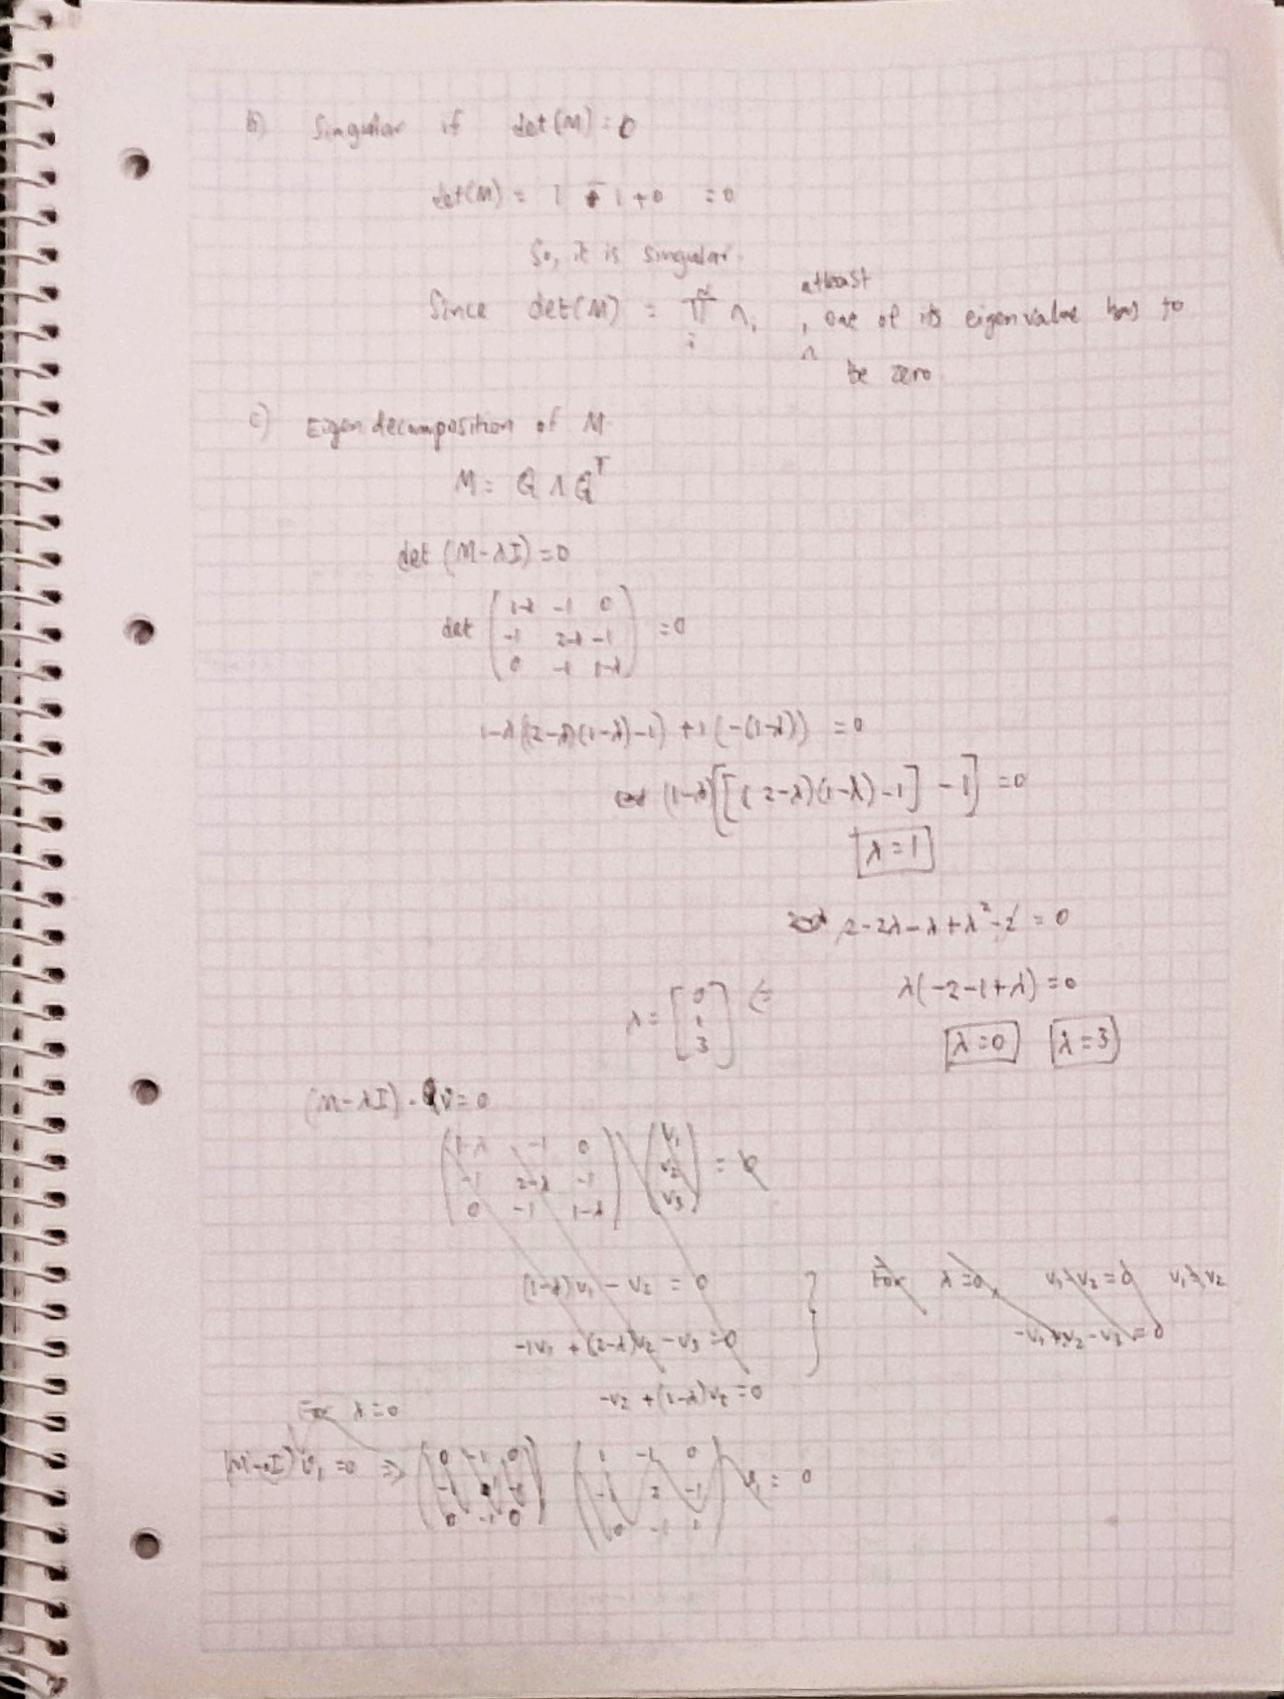 b) Singular if det(M) = 0
det(M) = 1 - 1 + 0 = 0
So, it is singular.
Since det(M) = ∏ λi , atleast one of its eigenvalue has to
be zero
c) Eigen decomposition of M
M = Q Λ Q^T
det (M-λI) = 0
det ( 1-λ -1 0
-1 2-λ -1
0 -1 1-λ ) = 0
1-λ((2-λ)(1-λ)-1) + 1(-(1-λ)) = 0
(1-λ)[[(2-λ)(1-λ)-1] - 1] = 0
λ = 1
2-2λ-λ+λ²-2 = 0
λ(-2-1+λ) = 0
λ = [ 0
1
3 ] ⇐
λ=0 λ=3
(M-λI) · v = 0
( 1-λ -1 0
-1 2-λ -1
0 -1 1-λ ) ( v1
v2
v3 ) = 0
(1-λ)v1 - v2 = 0
-1v1 + (2-λ)v2 - v3 = 0
-v2 + (1-λ)v2 = 0
For λ=0,
For λ=0
⇒ ( 0 -1 0
0 -1 0 ) ( 1 -1 0
-1 2 -1
0 -1 1 ) = 0